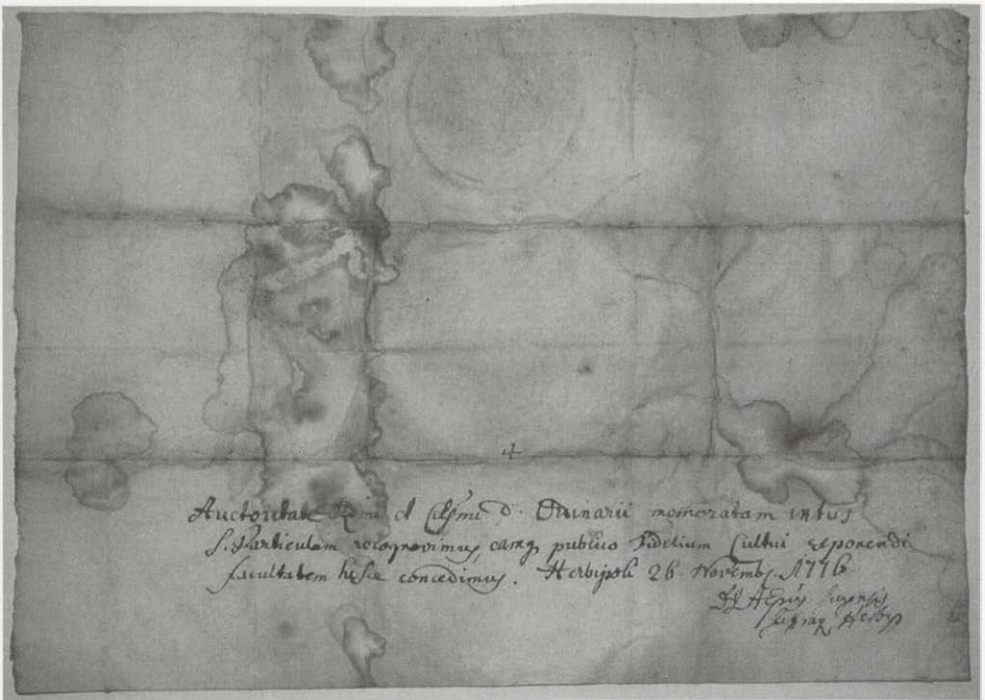 +
Auctoritate Rmi et Celsmi D. Ordinarii memoratam intus
S. Particulam recognovimus, eamq publico Fidelium Cultui exponendi
facultatem hisce concedimus. Herbipoli 26 Novemb. 1776